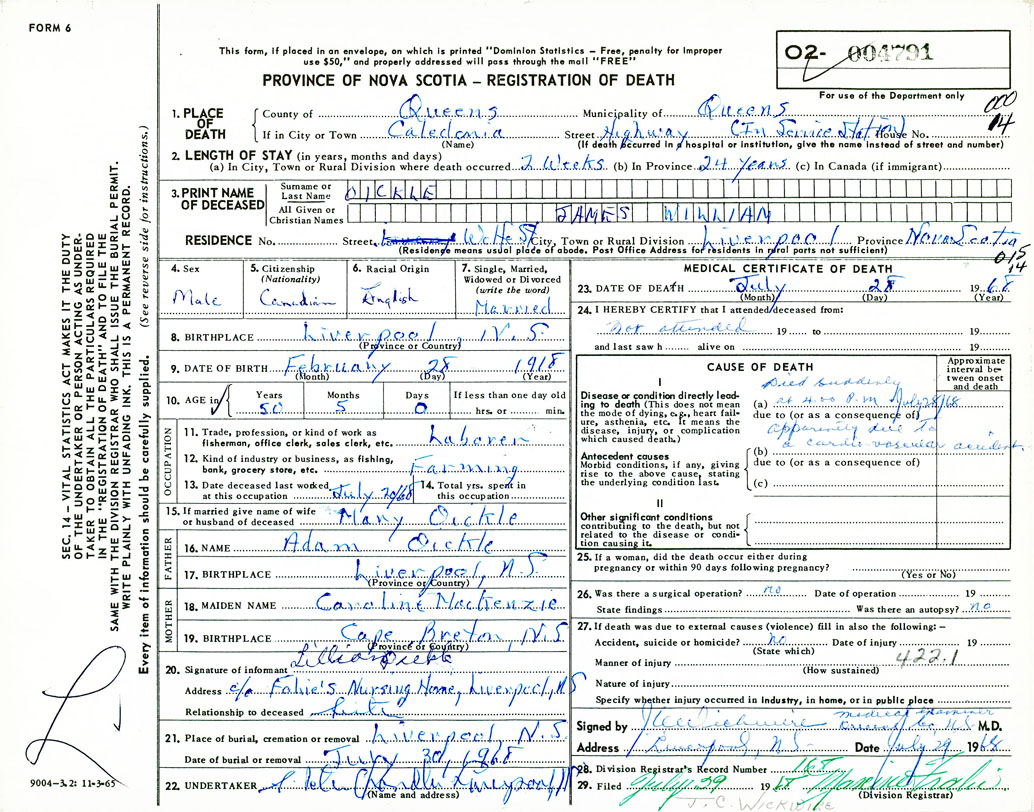 FORM 6
This form, if placed in an envelope, on which is printed "Dominion Statistics – Free, penalty for improper
use $50," and properly addressed will pass through the mail "FREE"
PROVINCE OF NOVA SCOTIA – REGISTRATION OF DEATH
02- 004791
For use of the Department only
000
14
1. PLACE OF DEATH
County of Queens Municipality of Queens
If in City or Town Caledonia Street Highway (In Service Station) House No.
(Name) (If death occurred in a hospital or institution, give the name instead of street and number)
2. LENGTH OF STAY (in years, months and days)
(a) In City, Town or Rural Division where death occurred 2 Weeks (b) In Province 24 years (c) In Canada (if immigrant)
3. PRINT NAME OF DECEASED
Surname or Last Name OICKLE
All Given or Christian Names JAMES WILLIAM
RESIDENCE No. Street City, Town or Rural Division Liverpool Province Nova Scotia
(Residence means usual place of abode. Post Office Address for residents in rural parts not sufficient)
015
14
4. Sex Male
5. Citizenship (Nationality) Canadian
6. Racial Origin English
7. Single, Married, Widowed or Divorced (write the word) Married
8. BIRTHPLACE Liverpool, N.S.
(Province or Country)
9. DATE OF BIRTH February 28 1918
(Month) (Day) (Year)
10. AGE in Years 50 Months 5 Days 0 If less than one day old hrs. or min.
OCCUPATION
11. Trade, profession, or kind of work as fisherman, office clerk, sales clerk, etc. Laborer
12. Kind of industry or business, as fishing, bank, grocery store, etc. Farming
13. Date deceased last worked at this occupation July 20/68
14. Total yrs. spent in this occupation
15. If married give name of wife or husband of deceased Mary Oickle
FATHER
16. NAME Adam Oickle
17. BIRTHPLACE Liverpool, N.S.
(Province or Country)
MOTHER
18. MAIDEN NAME Caroline MacKenzie
19. BIRTHPLACE Cape Breton, N.S
(Province or Country)
20. Signature of informant Lillian Oickle
Address c/o Fahie's Nursing Home, Liverpool, NS
Relationship to deceased
21. Place of burial, cremation or removal Liverpool N.S.
Date of burial or removal July 30, 1968
22. UNDERTAKER Chandler Liverpool
(Name and address)
MEDICAL CERTIFICATE OF DEATH
23. DATE OF DEATH July 28 1968
(Month) (Day) (Year)
24. I HEREBY CERTIFY that I attended/deceased from:
Not attended 19 to 19
and last saw h alive on 19
CAUSE OF DEATH
Approximate interval between onset and death
I
Disease or condition directly leading to death (This does not mean the mode of dying, e.g., heart failure, asthenia, etc. It means the disease, injury, or complication which caused death.)
Died suddenly
(a) at 4:00 P.M July 28/68
due to (or as a consequence of)
apparently due to
(b) a cardio vascular accident
Antecedent causes
Morbid conditions, if any, giving rise to the above cause, stating the underlying condition last.
due to (or as a consequence of)
(c)
II
Other significant conditions
contributing to the death, but not related to the disease or condition causing it.
25. If a woman, did the death occur either during
pregnancy or within 90 days following pregnancy?
(Yes or No)
26. Was there a surgical operation? no Date of operation 19
State findings Was there an autopsy? no
27. If death was due to external causes (violence) fill in also the following: –
Accident, suicide or homicide? no Date of injury 19
(State which)
422.1
Manner of injury
(How sustained)
Nature of injury
Specify whether injury occurred in industry, in home, or in public place
medical examiner
Signed by J C Wickwire M.D.
Address Liverpool, N.S. Date July 29 1968
28. Division Registrar's Record Number
29. Filed July 29 19
(Division Registrar)
J. C. WICKWIRE
SEC. 14 – VITAL STATISTICS ACT MAKES IT THE DUTY
OF THE UNDERTAKER OR PERSON ACTING AS UNDER-
TAKER TO OBTAIN ALL THE PARTICULARS REQUIRED
IN THE "REGISTRATION OF DEATH" AND TO FILE THE
SAME WITH THE DIVISION REGISTRAR WHO SHALL ISSUE THE BURIAL PERMIT.
WRITE PLAINLY WITH UNFADING INK. THIS IS A PERMANENT RECORD.
Every item of information should be carefully supplied. (See reverse side for instructions.)
9004–3.2: 11-3-65